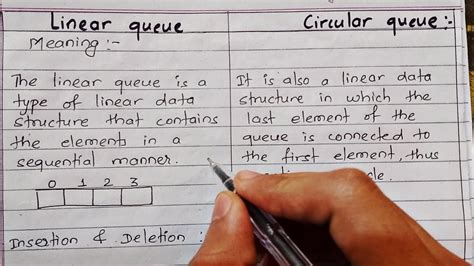 Linear queue
Meaning :-
The linear queue is a
type of linear data
structure that contains
the elements in a
sequential manner.
0 1 2 3
Insertion & Deletion :
Circular queue :-
It is also a linear data
structure in which the
last element of the
queue is connected to
the first element, thus